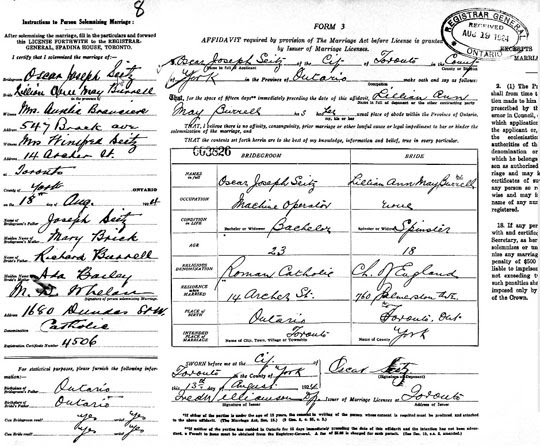 8
Instructions to Person Solemnizing Marriage:
After solemnizing marriage, fill in the particulars and forward
this LICENSE FORTHWITH TO THE REGISTRAR-
GENERAL, SPADINA HOUSE, TORONTO.
I certify that I solemnized the marriage of—
Bridegroom Oscar Joseph Seitz
Bride Lillian Ann May Burrell
in the presence of
Witness Mrs.
Address 547 Brock ave
Witness Mrs Winifred Seitz
Address 14 Archer St.
at Toronto
County of York ONTARIO
on the 18th day of Aug. 1924
Name of Bridegroom's Father Joseph Seitz
Maiden Name of Bridegroom's Mother Mary Brick
Name of Bride's Father Richard Burrell
Maiden Name of Bride's Mother Ada Bailey
M. D. Whelan
Signature of person solemnizing Marriage.
Address 1680 Dundas St W.
Denomination Catholic
Registration Certificate Number 4506
For statistical purposes, please furnish the following
information:—
Birthplace of Bridegroom's Father Ontario
Birthplace of Bride's Father Ontario
Can Bridegroom read? yes write? yes
Can Bride read? yes write? yes
FORM 3
AFFIDAVIT required by provision of The Marriage Act before License is granted
by Issuer of Marriage Licenses.
I, Oscar Joseph Seitz of the City of Toronto in the County
York in the Province of Ontario make oath and say as follows:
That, for the space of fifteen days immediately preceding the date of this affidavit Lillian Ann
May Burrell had her usual place of abode within the Province of Ontario.
AND THAT I believe there is no affinity, consanguinity, prior marriage or other lawful cause or legal impediment to bar or hinder
the solemnization of the marriage.
AND THAT the contents set forth herein are to the best of my knowledge, information and belief, true in every particular.
003826
BRIDEGROOM BRIDE
NAMES in full Oscar Joseph Seitz Lillian Ann May Burrell
OCCUPATION Machine Operator none
CONDITION IN LIFE Bachelor Spinster
Bachelor or Widower Spinster or Widow
AGE 23 18
RELIGIOUS DENOMINATION Roman Catholic Ch. of England
RESIDENCE WHEN MARRIED 14 Archer St. 760 Palmerston Ave.
PLACE OF BIRTH Ontario Toronto, Ont.
INTENDED PLACE OF MARRIAGE Toronto York
Name of City, Town, Village or Township Name of County
SWORN before me at the City of
Toronto in the County of York
this 13th day of August 1924
Oscar Seitz
(Signature of Deponent)
Issuer of Marriage Licenses at Toronto
REGISTRAR GENERAL
RECEIVED
AUG 19 1924
ONTARIO
EXCERPTS
MARRIA
2. (1) The P
shall from time t
tion made to him
prescribed by th
ernor in Council,
which application
the applicant or,
the ecclesiastica
authorities of th
denomination or
which he belongs
son as authorized
riage and may
certificates of su
any person so re
wise and may r
name of any such
registered.
18. If any per
with and certified
Secretary, as her
solemnizes or un
nise any marriag
penalty of $500
liable to imprison
not exceeding tw
such penalties sha
imposed only by
of the Crown.